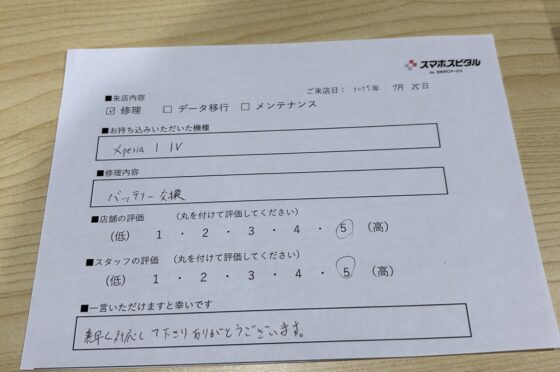 スマホスピタル
ご来店日： 2025年 9月 25日
■来店内容
☑ 修理 □ データ移行 □ メンテナンス
■お持ち込みいただいた機種
Xperia 1 IV
■修理内容
バッテリー交換
■店舗の評価 （丸を付けて評価してください）
（低） 1 ・ 2 ・ 3 ・ 4 ・ 5 （高）
■スタッフの評価 （丸を付けて評価してください）
（低） 1 ・ 2 ・ 3 ・ 4 ・ 5 （高）
■一言いただけますと幸いです
素早く対応して下さりありがとうございます。